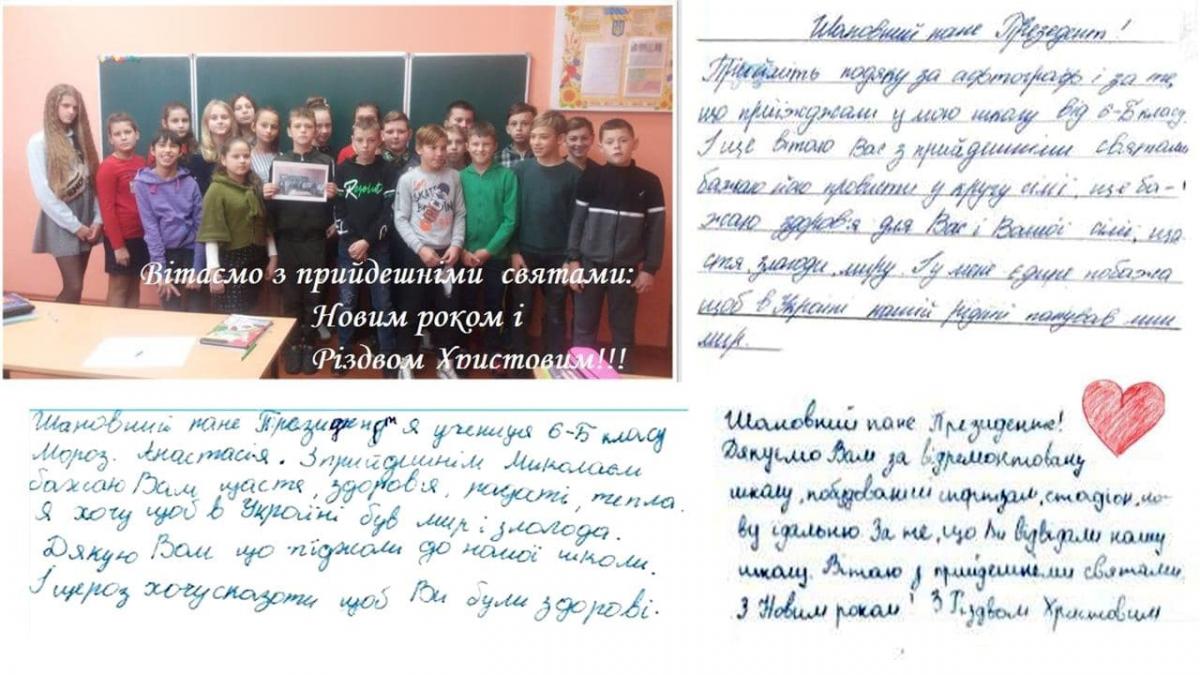 Вітаємо з прийдешніми святами:
Новим роком і
Різдвом Христовим!!!
Шановний пане Президент!
Прийміть подяку за афтограф і за те,
що приїжджали у мою школу від 6-Б класу.
І ще вітаю Вас з прийдешніми святами
бажаю його провести у кругу сімї, ще ба-
жаю здоров'я для Вас і Вашої сімї, ща-
стя, злагоди, миру. І у мене єдине побажа
щоб в Україні нашій рідній панував
мир.
Шановний пане Президент я учениця 6-Б класу
Мороз. Анастасія. З прийдешнім Миколаєм
бажаю Вам щастя, здоровя, радаті, тепла.
я хочу щоб в Україні був мир і злагода.
Дякую Вам що піджали до нашої школи.
І щераз хочу сказати щоб Ви були здорові.
Шановний пане Президенте!
Дякуємо Вам за відремонтовану
школу, побудований спортзал, стадіон, но-
ву їдальню. За те, що Ви відвідали нашу
школу. Вітаю з прийдешнеми святами.
З Новим роком! З Різдвом Христовим